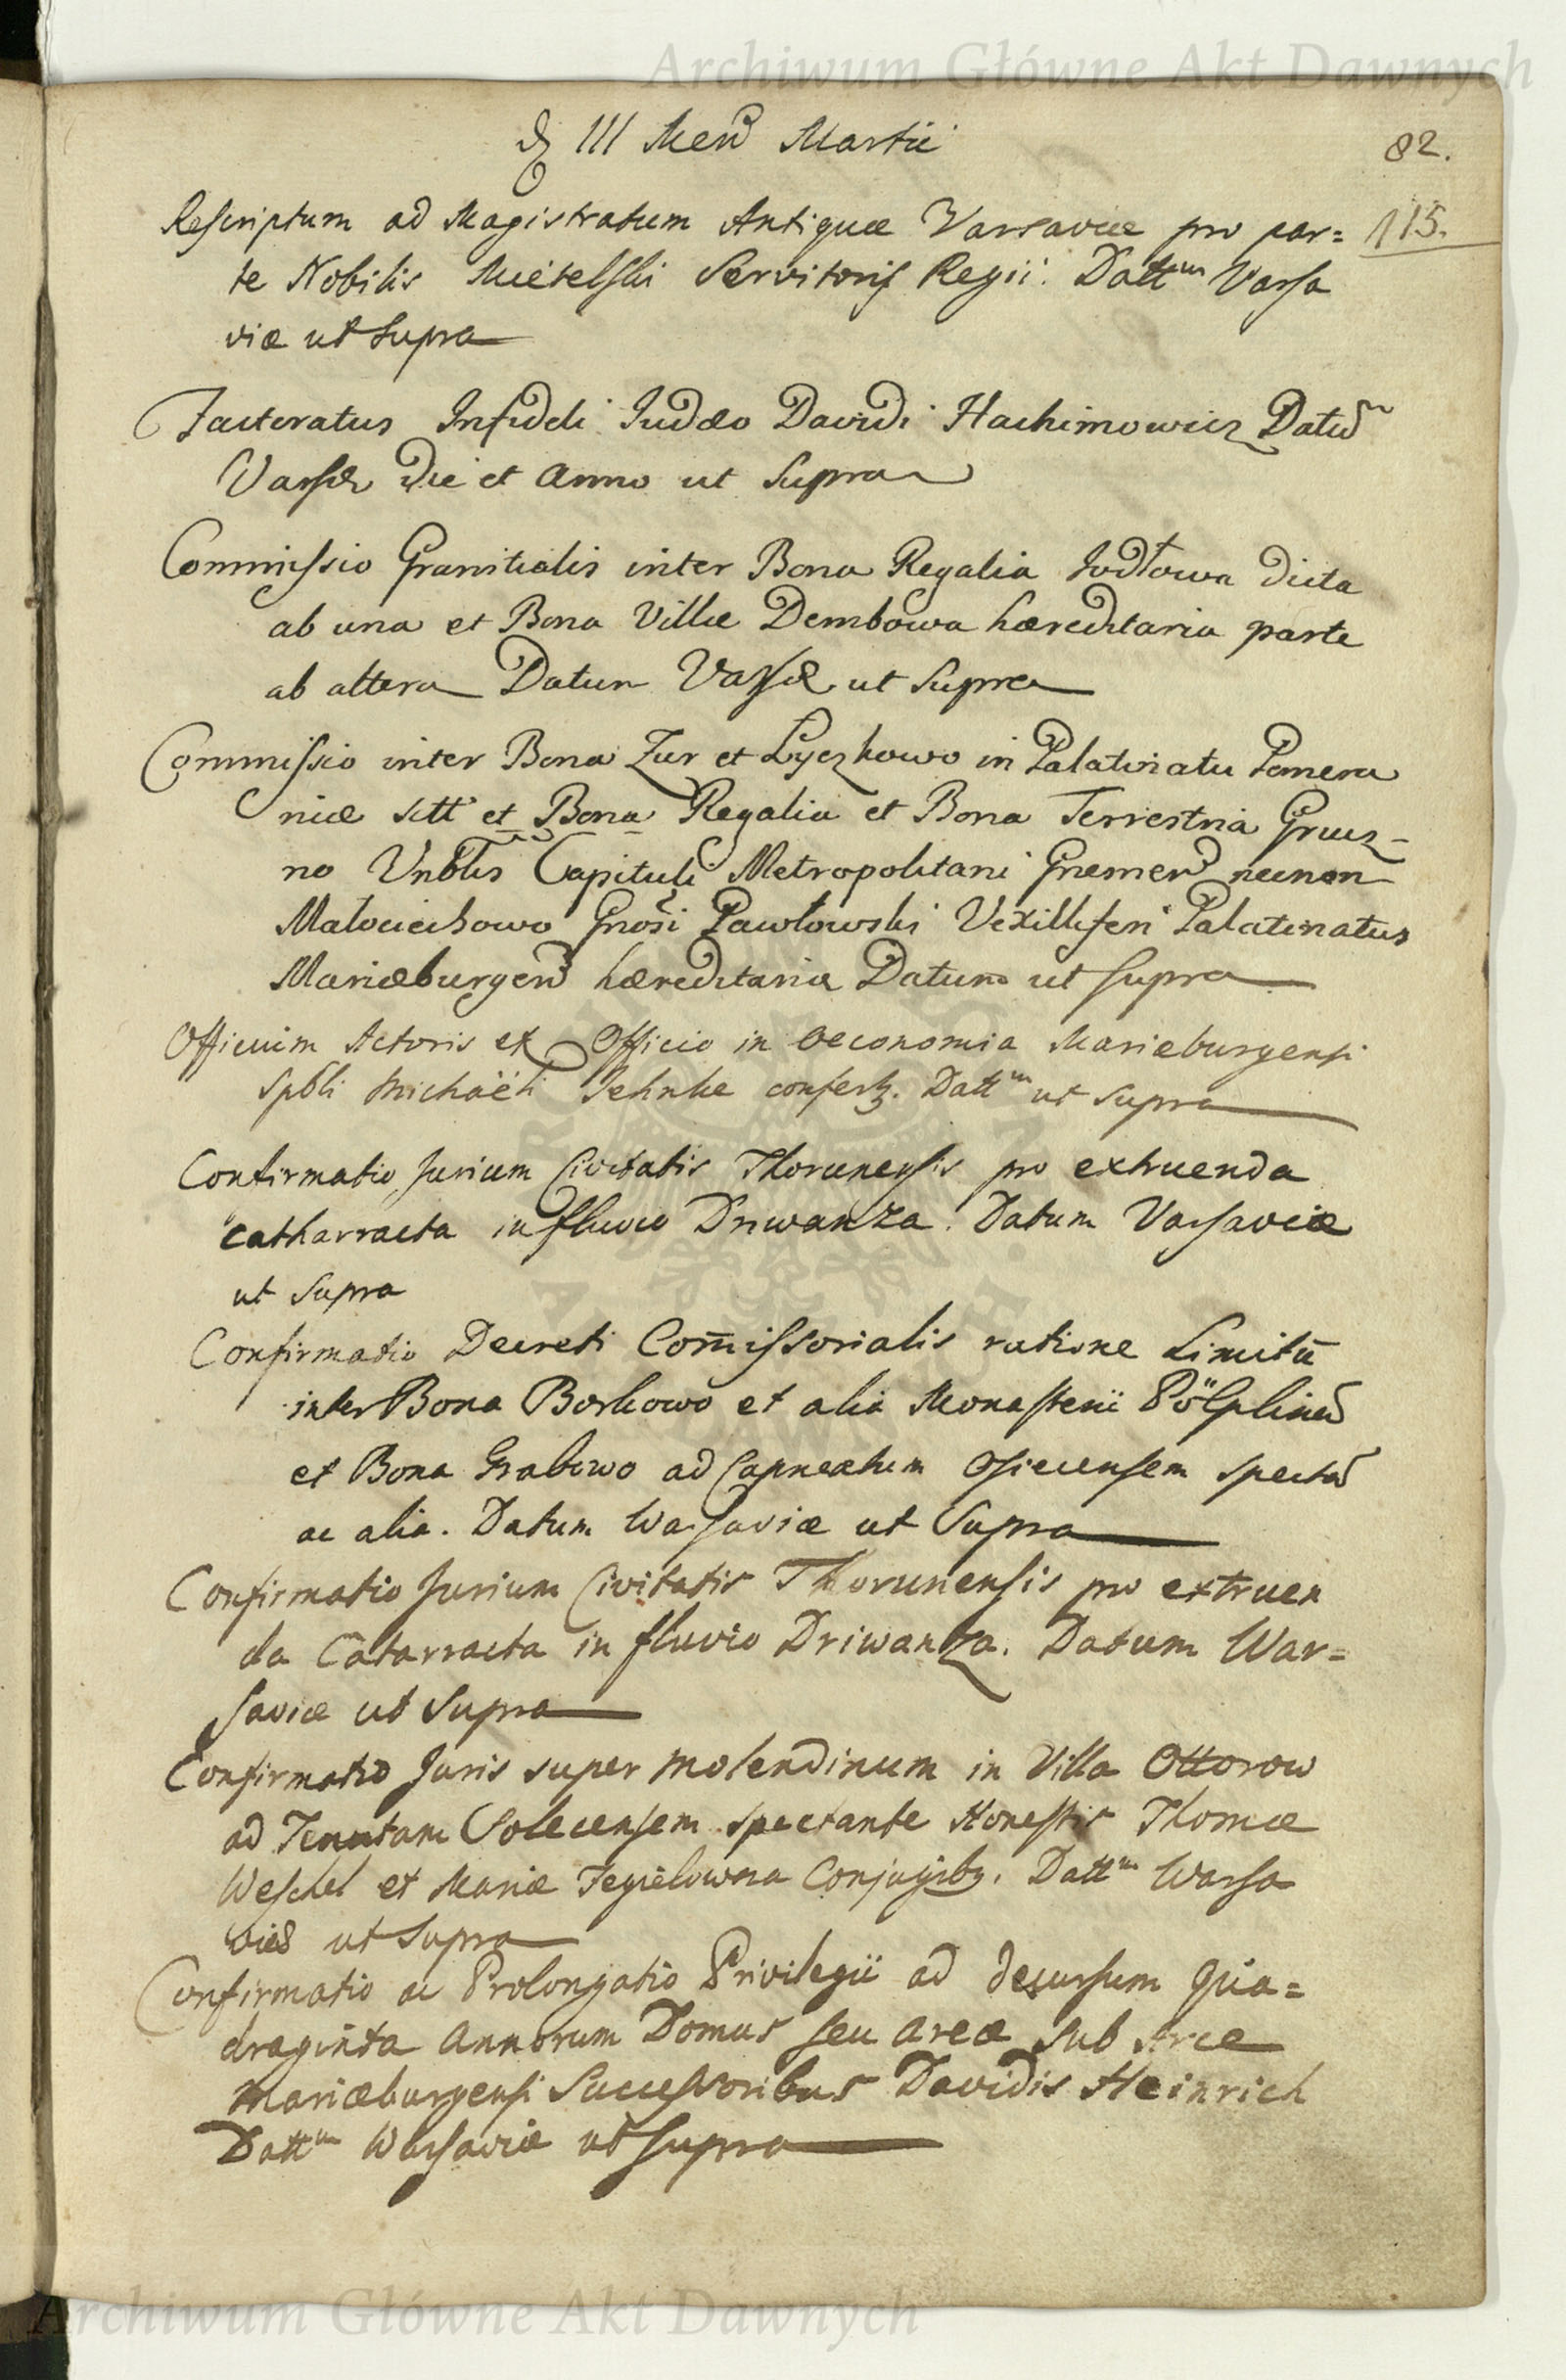 Archiwum Główne Akt Dawnych
III Mens Martii
82.
Rescriptum ad Magistratum Antiquæ Varsaviæ pro par=
115.
te Nobilis Mietelski Servitoris Regii. Datt^m Varsa
viæ ut Supra
Factoratus Infideli Judæo Davidi Hachimowicz Datum
Varsæ die et Anno ut Supra
Commissio Granitialis inter Bona Regalia Jodłowa dicta
ab una et Bona Villæ Dembowa hæreditaria parte
ab altera Datum Varsæ ut Supra
Commissio inter Bona Zur et Łyczkowo in Palatinatu Pomera
niæ sitt et Bona Regalia et Bona Terrestria Grucz-
no Vnblis Capituli Metropolitani Gnesnen necnon
Małociechowo Gnosi Pawłowski Vexilliferi Palatinatus
Mariæburgen hæreditaria Datum ut supra
Officium Actoris ex Officio in Oeconomia Mariæburgensi
Spbli Michaëli Jehnke confert. Datt^m ut supra
Confirmatio Jurium Civitatis Thorunensis pro extruenda
catharracta in fluvio Driwanza. Datum Varsaviæ
ut Supra
Confirmatio Decreti Com̄issorialis ratione Limitū
inter Bona Borkowo et alia Monasterii Pölplinen
et Bona Grabowo ad Capneatum Osiecensem spectan
ac alia. Datum Warsaviæ ut Supra
Confirmatio Jurium Civitatis Thorunensis pro extruen
da Catarracta in fluvio Driwanza. Datum War=
saviæ ut Supra
Confirmatio Juris super molendinum in Villa Ottorow
ad Tenutam Solecensem spectante Honestis Thomæ
Weschel et Mariæ Fegielowna Conjugibq. Datt^m Warsa
viæ ut Supra
Confirmatio ac Prolongatio Privilegii ad decursum Qua=
draginta Annorum Domus seu areæ sub Arce
Mariæburgensi Successoribus Davidis Heinrich
Datt^m Warsaviæ ut supra
Archiwum Główne Akt Dawnych